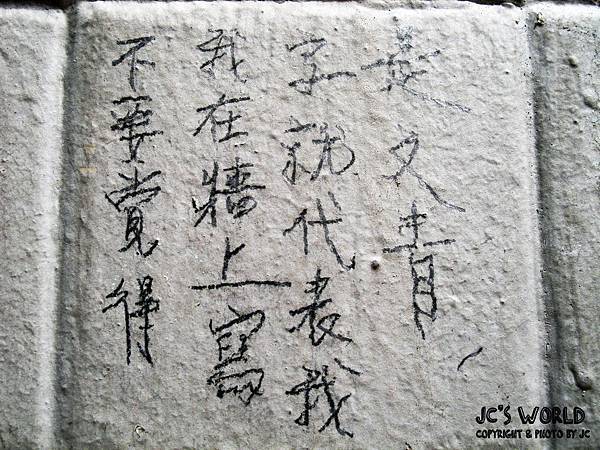 不要覺得
我在牆上寫
字就代表我
是文青，
JC'S WORLD
COPYRIGHT & PHOTO BY JC